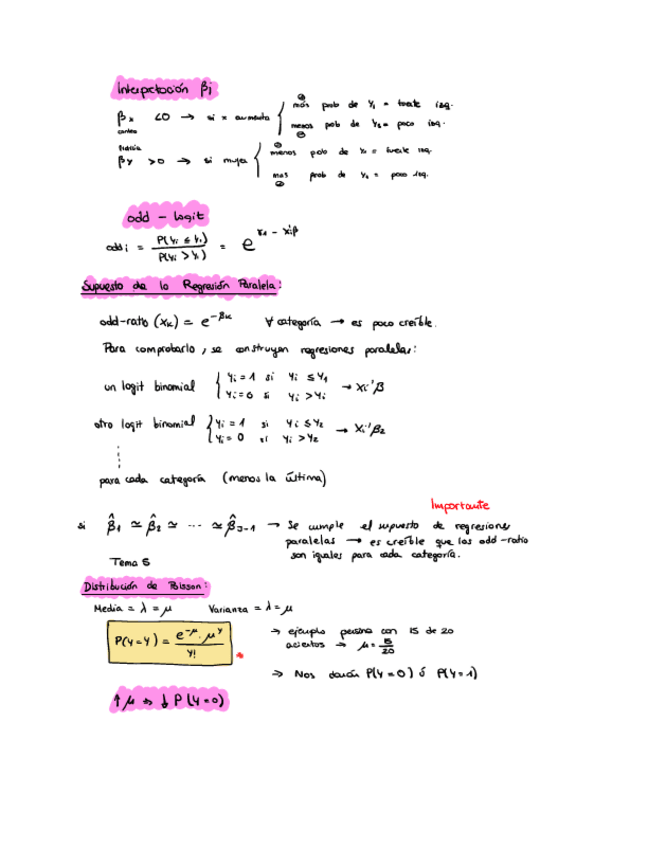 Interpretación βj
βx <0 → si x aumenta { más prob de Y1 = fuerte izq.
menos prob de Y4 = poco izq.
βy >0 → si mujer { menos prob de Y1 = fuerte izq.
mas prob de Y4 = poco izq.
odd - logit
odd i = P(Yi ≤ Y1) / P(Yi > Y1) = e^(γ1 - xi'β)
Supuesto de la Regresión Paralela:
odd-ratio (xk) = e^(-βk) ∀ categoría → es poco creíble.
Para comprobarlo, se construyen regresiones paralelas:
un logit binomial { Yi = 1 si Yi ≤ Y1
Yi = 0 si Yi > Yi → Xi'β
otro logit binomial { Yi = 1 si Yi ≤ Y2
Yi = 0 si Yi > Y2 → Xi'β2
para cada categoría (menos la última)
Importante
si β̂1 ≃ β̂2 ≃ ... ≃ β̂J-1 → Se cumple el supuesto de regresiones
paralelas → es creíble que los odd-ratio
son iguales para cada categoría.
Tema 5
Distribución de Poisson:
Media = λ = μ Varianza = λ = μ
P(Y=Y) = e^(-μ) · μ^Y / Y!
→ ejemplo persona con 15 de 20
aciertos → μ = 15/20
→ Nos darán P(Y=0) ó P(Y=1)
↑ μ ⇒ ↓ P(Y=0)